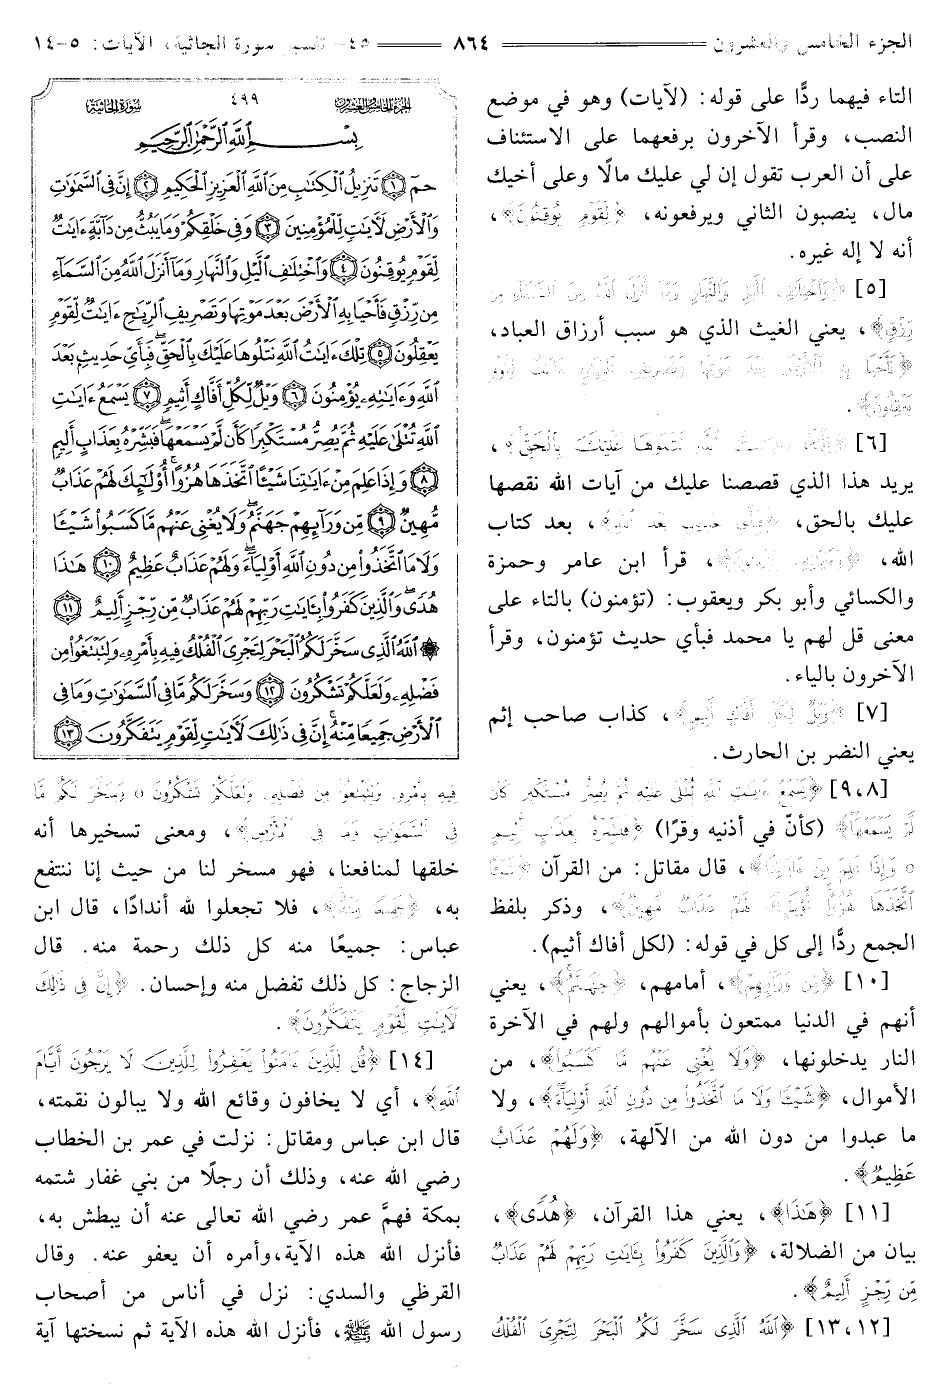 الجزء الخامس والعشرون ٨٦٤ ٤٥- تفسير سورة الجاثية، الآيات: ٥-١٤
التاء فيهما ردًّا على قوله: (لآيات) وهو في موضع
النصب، وقرأ الآخرون برفعهما على الاستئناف
على أن العرب تقول إن لي عليك مالًا وعلى أخيك
مال، ينصبون الثاني ويرفعونه، ﴿لِّقَوْمٍ يُوقِنُونَ﴾،
أنه لا إله غيره.
[٥] ﴿وَاخْتِلَافِ الَّيْلِ وَالنَّهَارِ وَمَا أَنزَلَ اللَّهُ مِنَ السَّمَاءِ مِن
رِّزْقٍ﴾، يعني الغيث الذي هو سبب أرزاق العباد،
﴿فَأَحْيَا بِهِ الْأَرْضَ بَعْدَ مَوْتِهَا وَتَصْرِيفِ الرِّيَاحِ ءَايَاتٌ لِّقَوْمٍ
يَعْقِلُونَ﴾.
[٦] ﴿تِلْكَ ءَايَاتُ اللَّهِ نَتْلُوهَا عَلَيْكَ بِالْحَقِّ﴾،
يريد هذا الذي قصصنا عليك من آيات الله نقصها
عليك بالحق، ﴿فَبِأَيِّ حَدِيثٍ بَعْدَ اللَّهِ﴾، بعد كتاب
الله، ﴿وَءَايَاتِهِ يُؤْمِنُونَ﴾، قرأ ابن عامر وحمزة
والكسائي وأبو بكر ويعقوب: (تؤمنون) بالتاء على
معنى قل لهم يا محمد فبأي حديث تؤمنون، وقرأ
الآخرون بالياء.
[٧] ﴿وَيْلٌ لِّكُلِّ أَفَّاكٍ أَثِيمٍ﴾، كذاب صاحب إثم
يعني النضر بن الحارث.
[٩،٨] ﴿يَسْمَعُ ءَايَاتِ اللَّهِ تُتْلَى عَلَيْهِ ثُمَّ يُصِرُّ مُسْتَكْبِرًا كَأَن
لَّمْ يَسْمَعْهَا﴾ (كأنّ في أذنيه وقرًا) ﴿فَبَشِّرْهُ بِعَذَابٍ أَلِيمٍ
٥ وَإِذَا عَلِمَ مِنْ ءَايَاتِنَا﴾، قال مقاتل: من القرآن ﴿شَيْئًا
اتَّخَذَهَا هُزُوًا أُولَئِكَ لَهُمْ عَذَابٌ مُّهِينٌ﴾، وذكر بلفظ
الجمع ردًّا إلى كل في قوله: (لكل أفاك أثيم).
[١٠] ﴿مِّن وَرَائِهِمْ﴾، أمامهم، ﴿جَهَنَّمُ﴾، يعني
أنهم في الدنيا ممتعون بأموالهم ولهم في الآخرة
النار يدخلونها، ﴿وَلَا يُغْنِي عَنْهُم مَّا كَسَبُوا﴾، من
الأموال، ﴿شَيْئًا وَلَا مَا اتَّخَذُوا مِن دُونِ اللَّهِ أَوْلِيَاءَ﴾، ولا
ما عبدوا من دون الله من الآلهة، ﴿وَلَهُمْ عَذَابٌ
عَظِيمٌ﴾.
[١١] ﴿هَذَا﴾، يعني هذا القرآن، ﴿هُدًى﴾،
بيان من الضلالة، ﴿وَالَّذِينَ كَفَرُوا بِئَايَاتِ رَبِّهِمْ لَهُمْ عَذَابٌ
مِّن رِّجْزٍ أَلِيمٌ﴾.
[١٣،١٢] ﴿اللَّهُ الَّذِي سَخَّرَ لَكُمُ الْبَحْرَ لِتَجْرِيَ الْفُلْكُ
الجزء الخامس والعشرون ٤٩٩ سورة الجاثية
بِسْمِ اللَّهِ الرَّحْمَٰنِ الرَّحِيمِ
حمٓ ١ تَنزِيلُ الْكِتَابِ مِنَ اللَّهِ الْعَزِيزِ الْحَكِيمِ ٢ إِنَّ فِي السَّمَٰوَٰتِ
وَالْأَرْضِ لَءَايَٰتٍ لِّلْمُؤْمِنِينَ ٣ وَفِي خَلْقِكُمْ وَمَا يَبُثُّ مِن دَآبَّةٍ ءَايَٰتٌ
لِّقَوْمٍ يُوقِنُونَ ٤ وَاخْتِلَٰفِ الَّيْلِ وَالنَّهَارِ وَمَآ أَنزَلَ اللَّهُ مِنَ السَّمَآءِ
مِن رِّزْقٍ فَأَحْيَا بِهِ الْأَرْضَ بَعْدَ مَوْتِهَا وَتَصْرِيفِ الرِّيَٰحِ ءَايَٰتٌ لِّقَوْمٍ
يَعْقِلُونَ ٥ تِلْكَ ءَايَٰتُ اللَّهِ نَتْلُوهَا عَلَيْكَ بِالْحَقِّ فَبِأَيِّ حَدِيثٍ بَعْدَ
اللَّهِ وَءَايَٰتِهِ يُؤْمِنُونَ ٦ وَيْلٌ لِّكُلِّ أَفَّاكٍ أَثِيمٍ ٧ يَسْمَعُ ءَايَٰتِ
اللَّهِ تُتْلَىٰ عَلَيْهِ ثُمَّ يُصِرُّ مُسْتَكْبِرًا كَأَن لَّمْ يَسْمَعْهَا فَبَشِّرْهُ بِعَذَابٍ أَلِيمٍ
٨ وَإِذَا عَلِمَ مِنْ ءَايَٰتِنَا شَيْئًا اتَّخَذَهَا هُزُوًا أُو۟لَٰٓئِكَ لَهُمْ عَذَابٌ
مُّهِينٌ ٩ مِّن وَرَآئِهِمْ جَهَنَّمُ وَلَا يُغْنِي عَنْهُم مَّا كَسَبُوا شَيْئًا
وَلَا مَا اتَّخَذُوا مِن دُونِ اللَّهِ أَوْلِيَآءَ وَلَهُمْ عَذَابٌ عَظِيمٌ ١٠ هَٰذَا
هُدًى وَالَّذِينَ كَفَرُوا بِئَايَٰتِ رَبِّهِمْ لَهُمْ عَذَابٌ مِّن رِّجْزٍ أَلِيمٌ ١١
۞ اللَّهُ الَّذِي سَخَّرَ لَكُمُ الْبَحْرَ لِتَجْرِيَ الْفُلْكُ فِيهِ بِأَمْرِهِ وَلِتَبْتَغُوا مِن
فَضْلِهِ وَلَعَلَّكُمْ تَشْكُرُونَ ١٢ وَسَخَّرَ لَكُم مَّا فِي السَّمَٰوَٰتِ وَمَا فِي
الْأَرْضِ جَمِيعًا مِّنْهُ إِنَّ فِي ذَٰلِكَ لَءَايَٰتٍ لِّقَوْمٍ يَتَفَكَّرُونَ ١٣
فِيهِ بِأَمْرِهِ وَلِتَبْتَغُوا مِن فَضْلِهِ وَلَعَلَّكُمْ تَشْكُرُونَ ٥ وَسَخَّرَ لَكُم مَّا
فِي السَّمَٰوَٰتِ وَمَا فِي الْأَرْضِ﴾، ومعنى تسخيرها أنه
خلقها لمنافعنا، فهو مسخر لنا من حيث إنا ننتفع
به، ﴿جَمِيعًا مِّنْهُ﴾، فلا تجعلوا لله أندادًا، قال ابن
عباس: جميعًا منه كل ذلك رحمة منه. قال
الزجاج: كل ذلك تفضل منه وإحسان. ﴿إِنَّ فِي ذَٰلِكَ
لَءَايَٰتٍ لِّقَوْمٍ يَتَفَكَّرُونَ﴾.
[١٤] ﴿قُل لِّلَّذِينَ ءَامَنُوا يَغْفِرُوا لِلَّذِينَ لَا يَرْجُونَ أَيَّامَ
اللَّهِ﴾، أي لا يخافون وقائع الله ولا يبالون نقمته،
قال ابن عباس ومقاتل: نزلت في عمر بن الخطاب
رضي الله عنه، وذلك أن رجلًا من بني غفار شتمه
بمكة فهمَّ عمر رضي الله تعالى عنه أن يبطش به،
فأنزل الله هذه الآية،وأمره أن يعفو عنه. وقال
القرظي والسدي: نزل في أناس من أصحاب
رسول الله ﷺ، فأنزل الله هذه الآية ثم نسختها آية